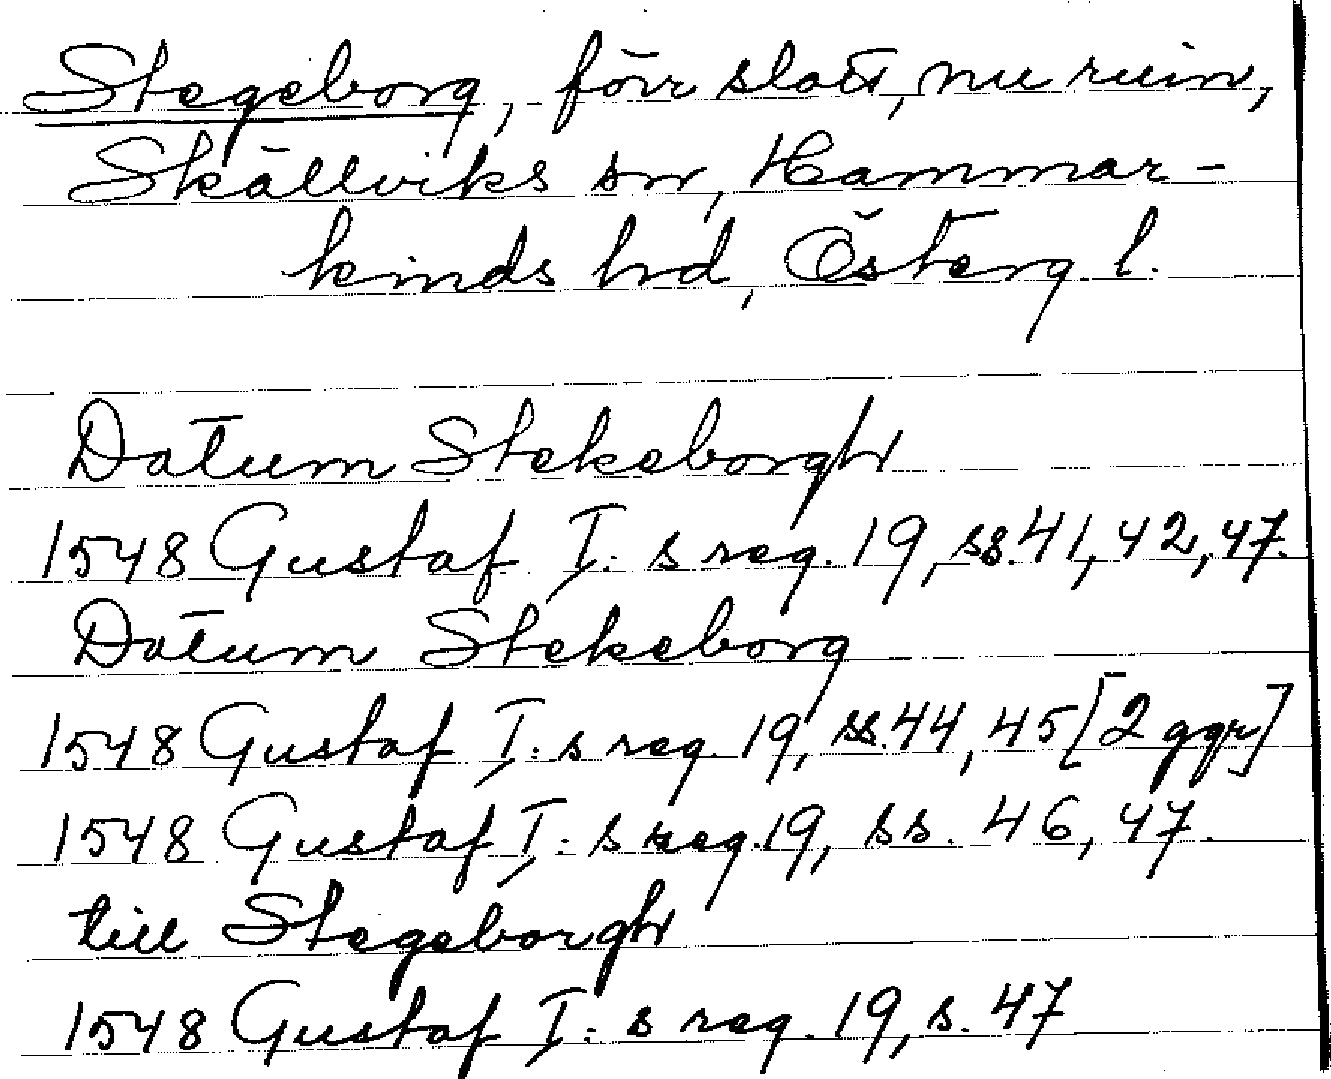 Stegeborg, förr slott, nu ruin,
Skällviks sn, Hammar-
kinds hd, Österg l.
Datum Stekeborgh
1548 Gustaf I:s reg. 19, ss. 41, 42, 47.
Datum Stekeborg
1548 Gustaf I:s reg. 19, ss. 44, 45 [2 ggr]
1548 Gustaf I:s reg. 19, ss. 46, 47.
till Stegeborgh
1548 Gustaf I:s reg. 19, s. 47